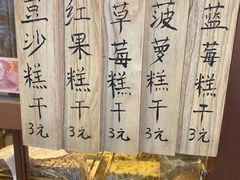 豆沙糕干3元
红果糕干3元
草莓糕干3元
菠萝糕干3元
蓝莓糕干3元